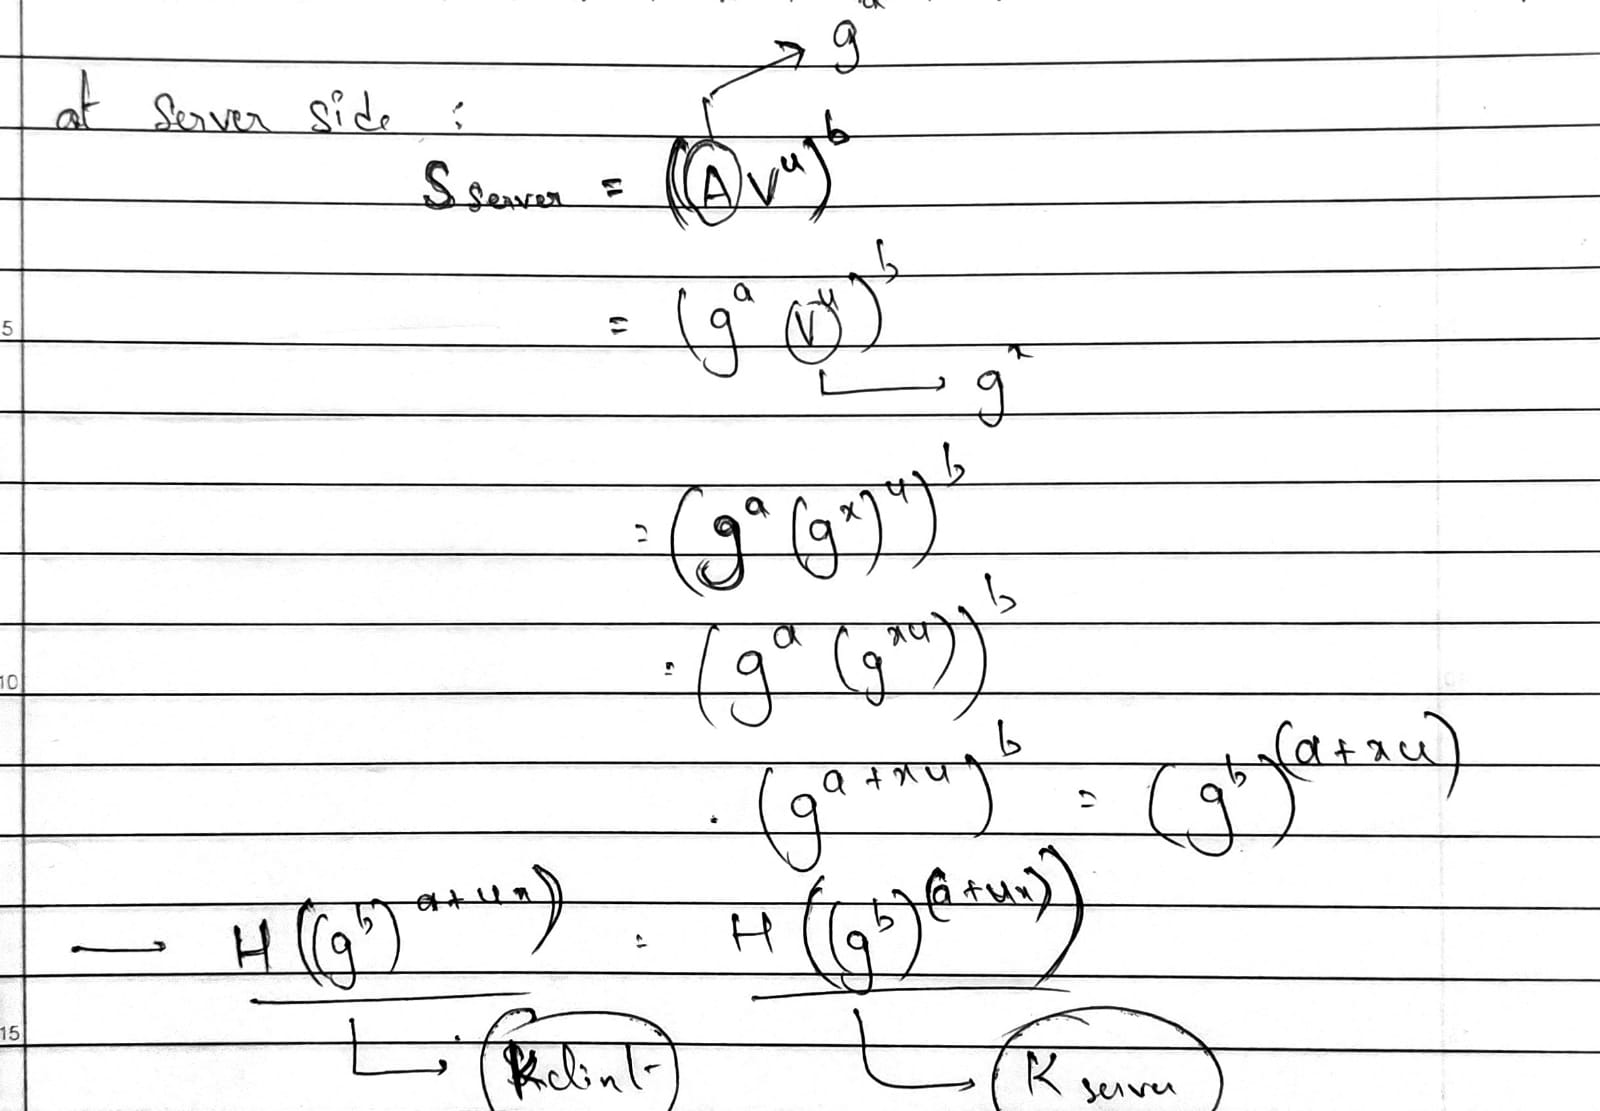 g
at Server side :
S server = ((A) v^u)^b
= (g^a (v)^u)^b
g^x
= (g^a (g^x)^u)^b
= (g^a (g^xu))^b
. (g^a+xu)^b = (g^b)^(a+xu)
→ H((g^b)^a+ux) = H((g^b)^(a+ux))
5
10
15
Kclint K server